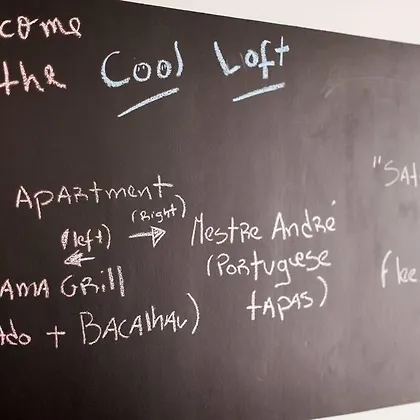 come
the Cool Loft
Apartment
(left) (Right)
AMA GRill
do + BACAlhAU)
MestRe André
(PoRtuguese
tAPAS)
"SAt
flee